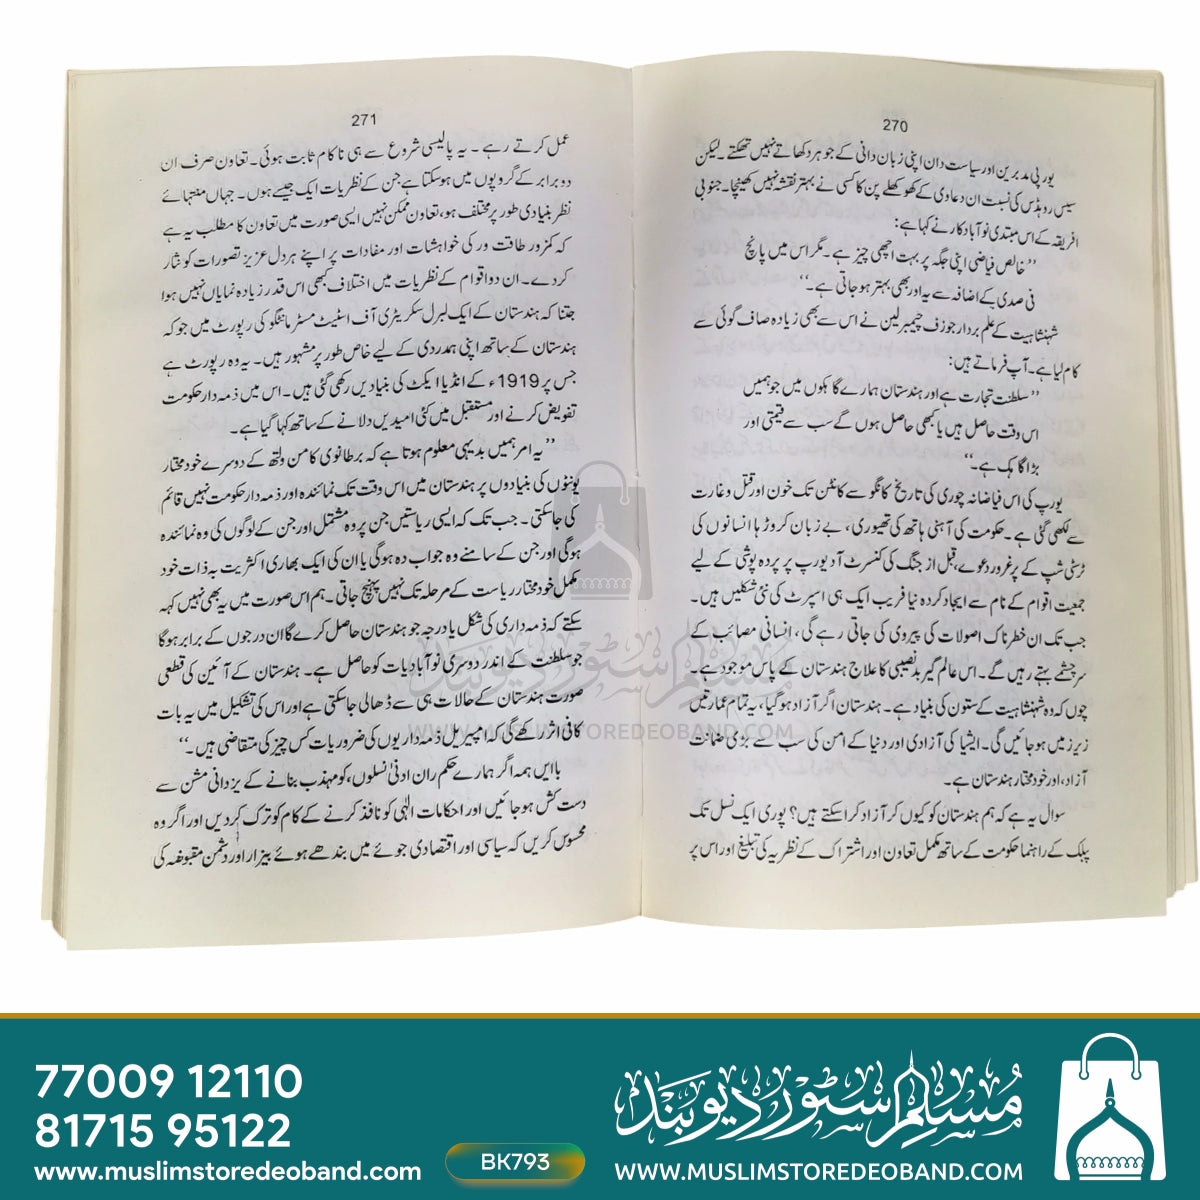 270
یورپی مدبرین اور سیاست دان اپنی زبان دانی کے جوہر دکھاتے نہیں تھکتے۔ لیکن
سیسل روہڈس کی نسبت ان دعاوی کے کھوکھلے پن کا کسی نے بہتر نقشہ نہیں کھینچا۔ جنوبی
افریقہ کے اس مبتدی نوآبادکار نے کہا ہے:
”خالص فیاضی اپنی جگہ پر بہت اچھی چیز ہے۔ مگر اس میں پانچ
فی صدی کے اضافہ سے یہ اور بھی بہتر ہوجاتی ہے۔“
شہنشاہیت کے علم بردار جوزف چیمبرلین نے اس سے بھی زیادہ صاف گوئی سے
کام لیا ہے۔ آپ فرماتے ہیں:
”سلطنت تجارت ہے اور ہندستان ہمارے گاہکوں میں جو ہمیں
اس وقت حاصل ہیں یا کبھی حاصل ہوں گے سب سے قیمتی اور
بڑا گاہک ہے۔“
یورپ کی اس فیاضانہ چوری کی تاریخ کانگو سے کانٹن تک خون اور قتل و غارت
سے لکھی گئی ہے۔ حکومت کی آہنی ہاتھ کی تھیوری، بے زبان کروڑہا انسانوں کی
ٹرسٹی شپ کے پرغرور دعوے، قبل از جنگ کی کنسرٹ آد یورپ پر پردہ پوشی کے لیے
جمعیت اقوام کے نام سے ایجاد کردہ نیا فریب ایک ہی اسپرٹ کی نئی شکلیں ہیں۔
جب تک ان خطرناک اصولات کی پیروی کی جاتی رہے گی، انسانی مصائب کے
سرچشمے بہتے رہیں گے۔ اس عالم گیر بدنصیبی کا علاج ہندستان کے پاس موجود ہے۔
چوں کہ وہ شہنشاہیت کے ستون کی بنیاد ہے۔ ہندستان اگر آزاد ہوگیا، یہ تمام عمارتیں
زیرز میں ہوجائیں گی۔ ایشیا کی آزادی اور دنیا کے امن کی سب سے بڑی ضمانت
آزاد، اور خودمختار ہندستان ہے۔
سوال یہ ہے کہ ہم ہندستان کو کیوں کر آزاد کراسکتے ہیں؟ پوری ایک نسل تک
پبلک کے راہنما حکومت کے ساتھ مکمل تعاون اور اشتراک کے نظریہ کی تبلیغ اور اس پر
271
عمل کرتے رہے۔ یہ پالیسی شروع سے ہی ناکام ثابت ہوئی۔ تعاون صرف ان
دو برابر کے گروپوں میں ہوسکتا ہے جن کے نظریات ایک جیسے ہوں۔ جہاں منتہائے
نظر بنیادی طور پر مختلف ہو، تعاون ممکن نہیں ایسی صورت میں تعاون کا مطلب یہ ہے
کہ کمزور طاقت ور کی خواہشات اور مفادات پر اپنے ہردل عزیز تصورات کو نثار
کردے۔ ان دو اقوام کے نظریات میں اختلاف کبھی اس قدر زیادہ نمایاں نہیں ہوا
جتنا کہ ہندستان کے ایک لبرل سکریٹری آف اسٹیٹ مسٹر مانٹگو کی رپورٹ میں جو کہ
ہندستان کے ساتھ اپنی ہمدردی کے لیے خاص طور پر مشہور ہیں۔ یہ وہ رپورٹ ہے
جس پر 1919ء کے انڈیا ایکٹ کی بنیادیں رکھی گئی ہیں۔ اس میں ذمہ دار حکومت
تفویض کرنے اور مستقبل میں کئی امیدیں دلانے کے ساتھ کہا گیا ہے۔
”یہ امر ہمیں بدیہی معلوم ہوتا ہے کہ برطانوی کامن ولتھ کے دوسرے خودمختار
یونٹوں کی بنیادوں پر ہندستان میں اس وقت تک نمائندہ اور ذمہ دار حکومت نہیں قائم
کی جاسکتی۔ جب تک کہ ایسی ریاستیں جن پر وہ مشتمل اور جن کے لوگوں کی وہ نمائندہ
ہوگی اور جن کے سامنے وہ جواب دہ ہوگی یا ان کی ایک بھاری اکثریت بہ ذات خود
مکمل خودمختار ریاست کے مرحلہ تک نہیں پہنچ جاتی۔ ہم اس صورت میں یہ بھی نہیں کہہ
سکتے کہ ذمہ داری کی شکل یا درجہ جو ہندستان حاصل کرے گا ان درجوں کے برابر ہوگا
جو سلطنت کے اندر دوسری نوآبادیات کو حاصل ہے۔ ہندستان کے آئین کی قطعی
صورت ہندستان کے حالات ہی سے ڈھالی جاسکتی ہے اور اس کی تشکیل میں یہ بات
کافی اثر رکھے گی کہ امپیریل ذمہ داریوں کی ضروریات کس چیز کی متقاضی ہیں۔“
باایں ہمہ اگر ہمارے حکم ران ادنیٰ نسلوں، کو مہذب بنانے کے یزدانی مشن سے
دست کش ہوجائیں اور احکامات الٰہی کو نافذ کرنے کے کام کو ترک کردیں اور اگر وہ
محسوس کریں کہ سیاسی اور اقتصادی جوئے میں بندھے ہوئے بیزار اور دشمن مقبوضہ کی
مسلم سٹور دیوبند
WWW.MUSLIMSTOREDEOBAND.COM
77009 12110
81715 95122
www.muslimstoredeoband.com
BK793
مسلم سٹور دیوبند
WWW.MUSLIMSTOREDEOBAND.COM